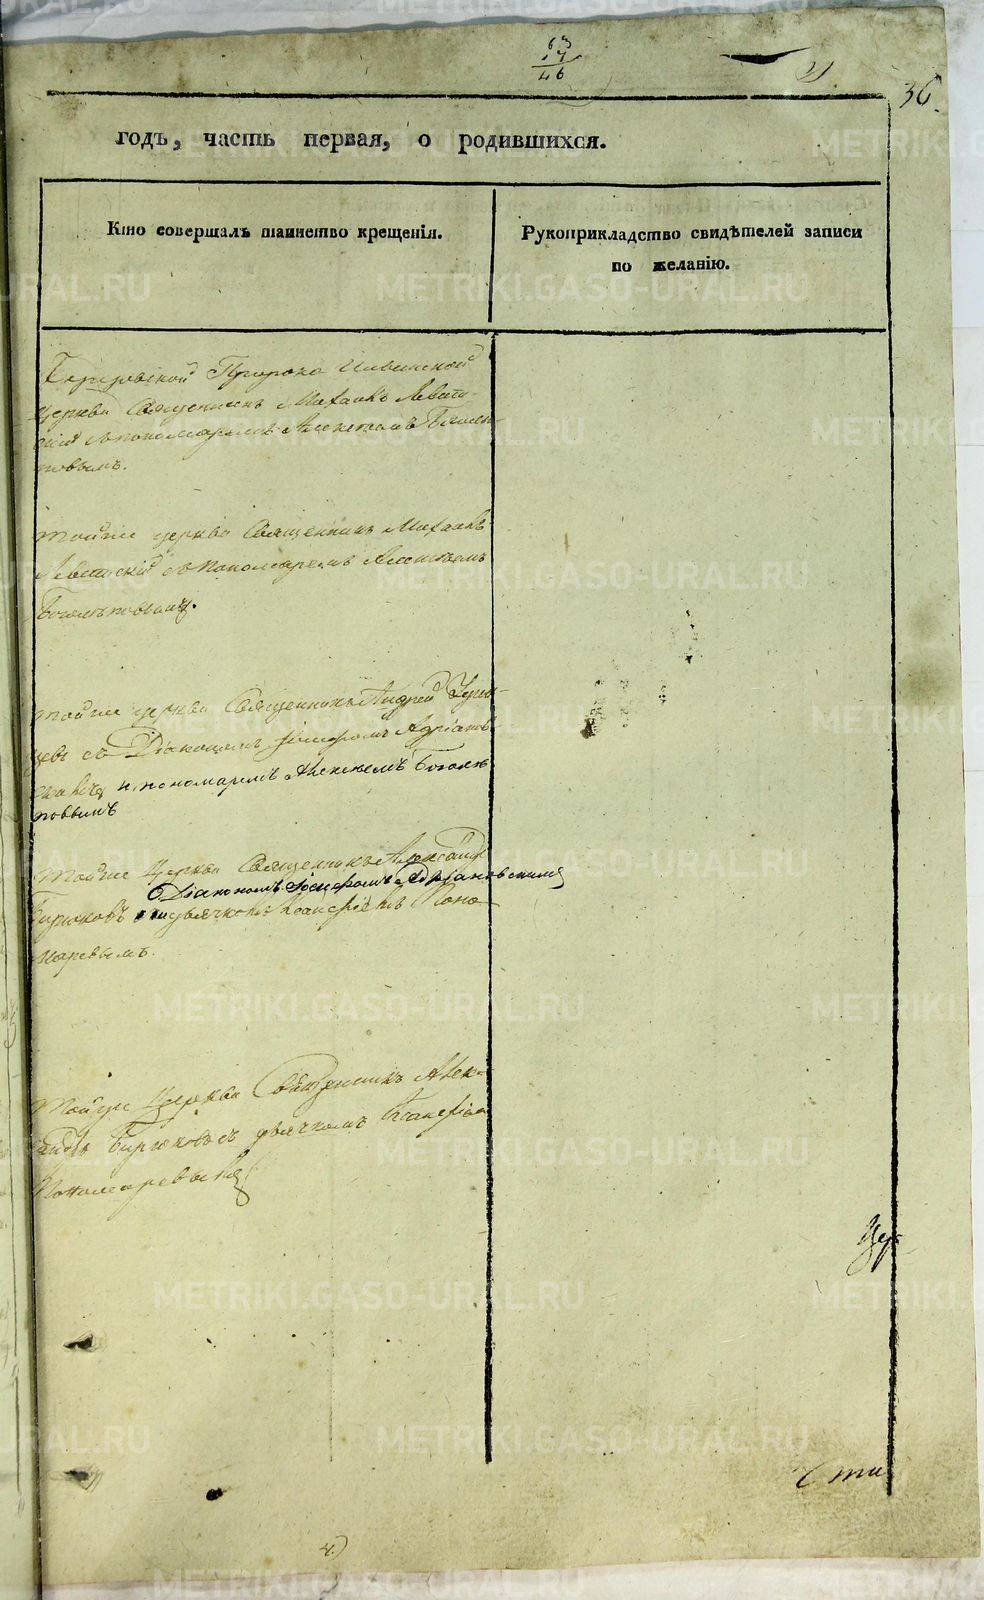 63
17
46
36.
годъ, часть первая, о родившихся.
Кто совершалъ таинство крещенія.
Рукоприкладство свидѣтелей записи
по желанію.
Пророко Ильинской
Церкви Священникъ Михаилъ Левит-
скій съ пономаремъ Алексѣемъ Боголѣ-
повымъ.
Тойже церкви Священникъ Михаилъ
Левитскій съ Пономаремъ Алексѣемъ
Боголѣповымъ.
Тойже церкви Священникъ Андрей
съ Діакономъ Іосифомъ Адріанов-
и пономаремъ Алексѣемъ Боголѣ-
повымъ
Тойже Церкви Священникъ Александръ
Діакономъ Іосифомъ Адріановскимъ
Бирюковъ дьячкомъ Поно-
маревымъ.
Тойже Церкви Священникъ Алек-
сандръ Бирюковъ съ дьячкомъ
Пономаревымъ
METRIKI.GASO-URAL.RU